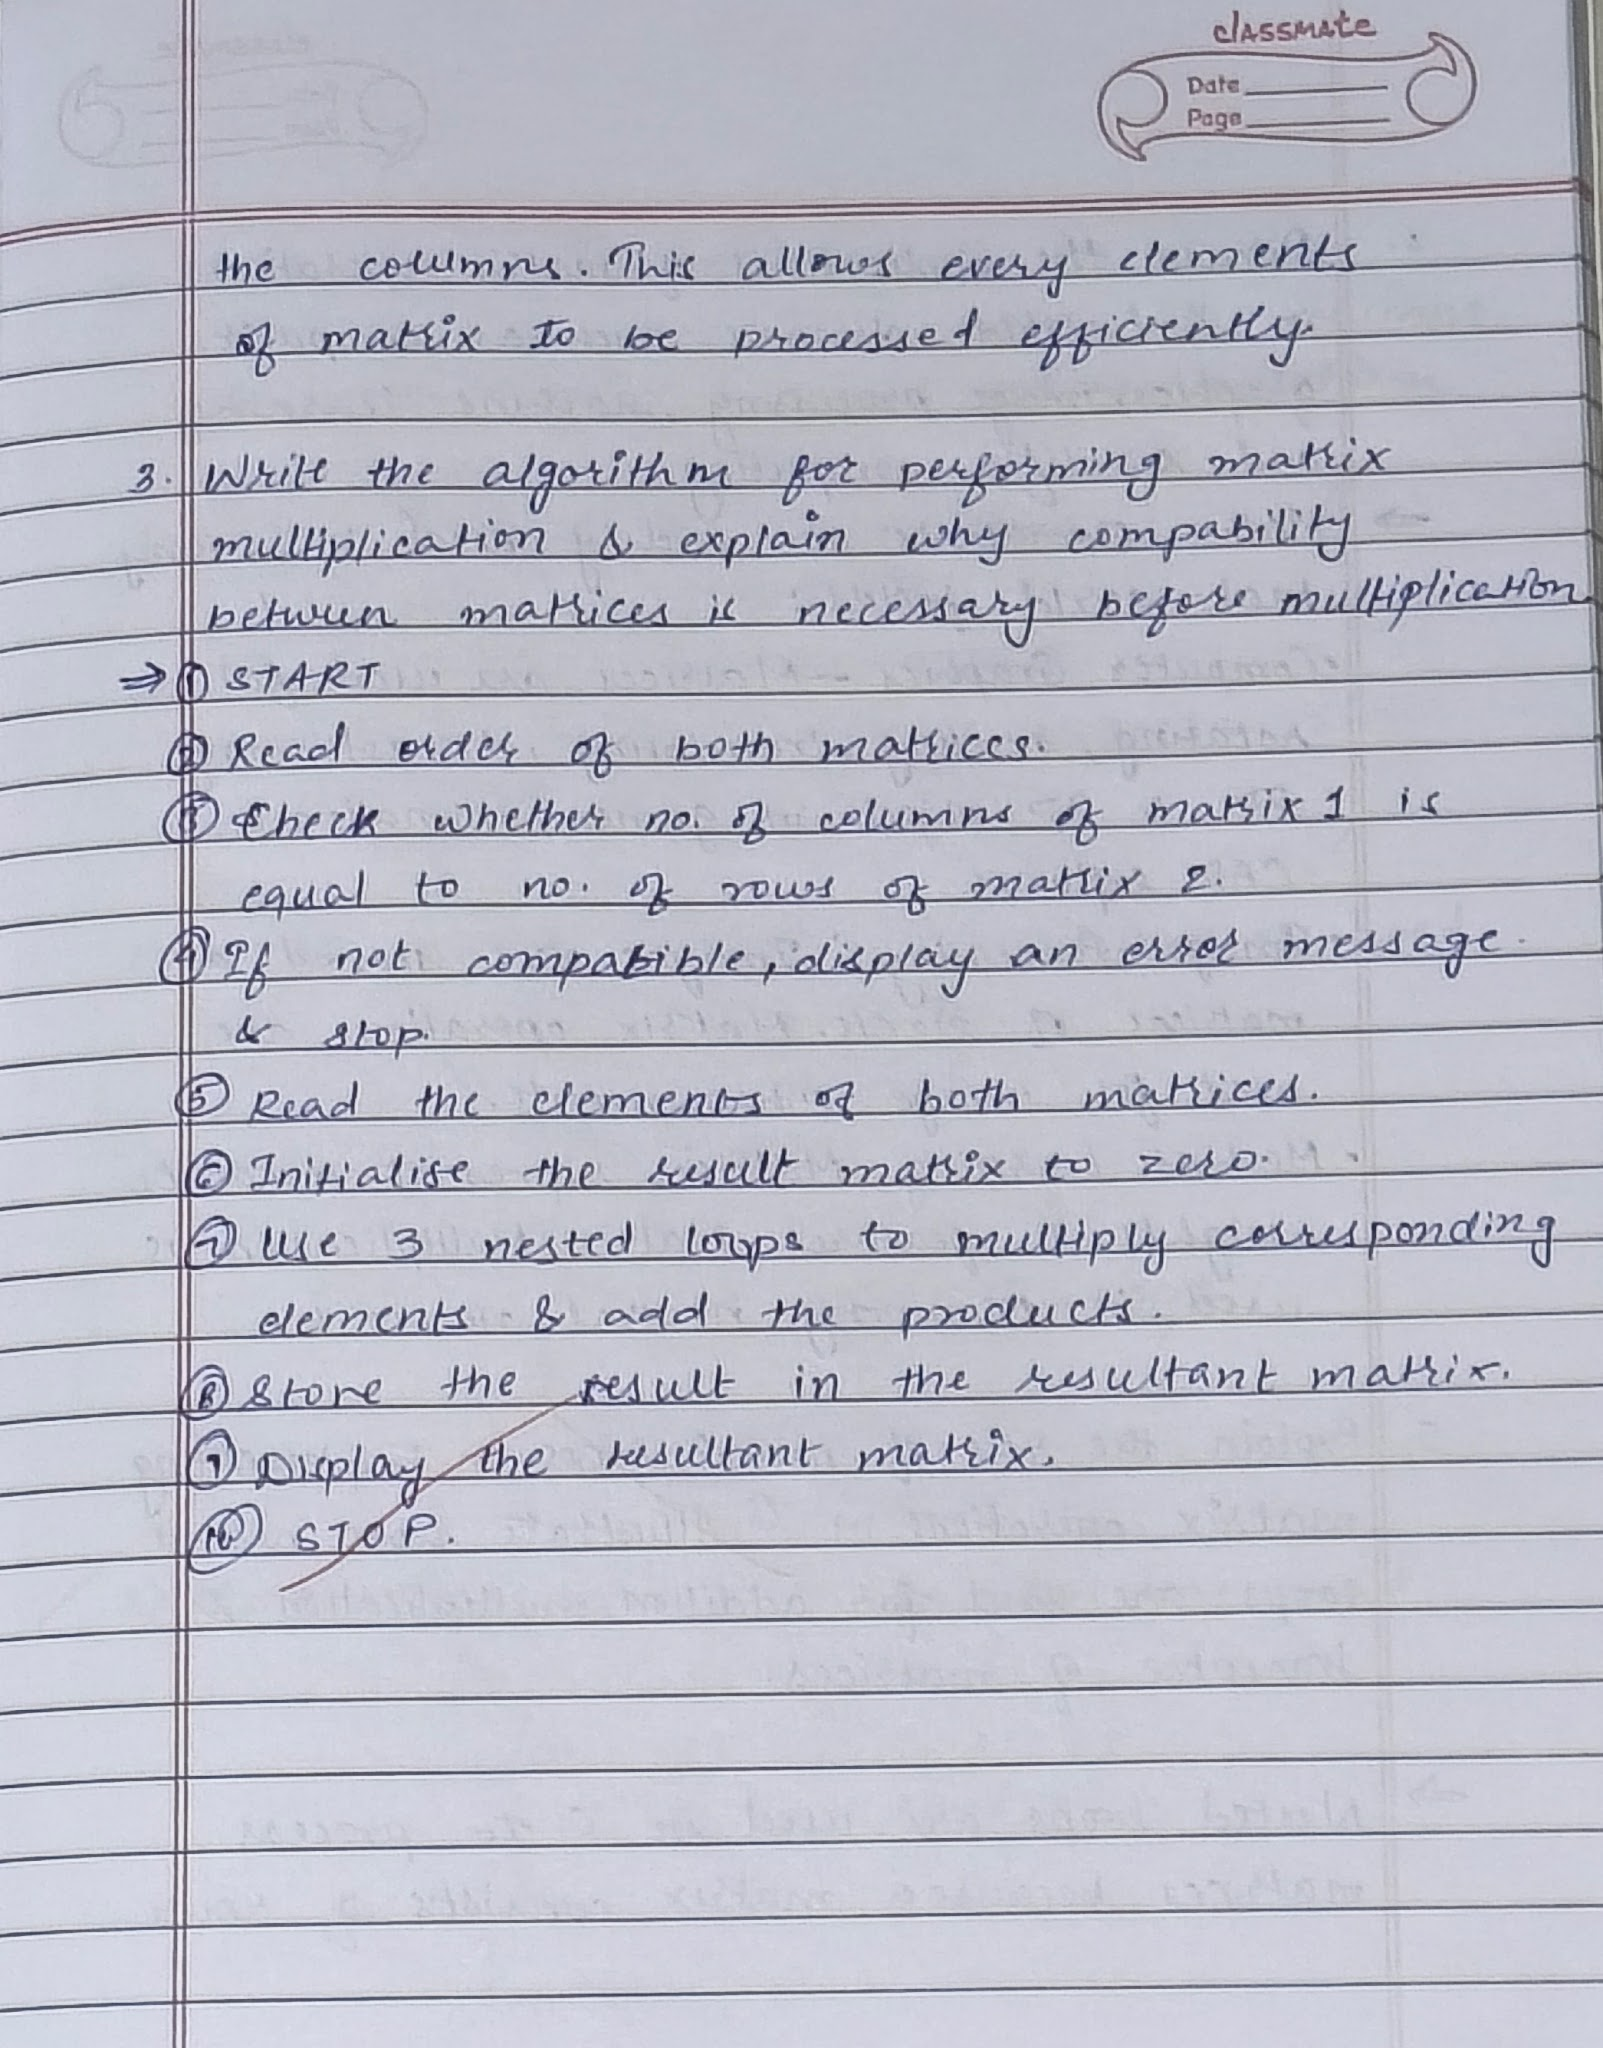 classmate
Date
Page
the columns. This allows every elements
of matrix to be processed efficiently.
3. Write the algorithm for performing matrix
multiplication & explain why compability
between matrices is necessary before multiplication
⇒ ① START
② Read order of both matrices.
③ Check whether no. of columns of matrix 1 is
equal to no. of rows of matrix 2.
④ If not compatible, display an error message
& stop.
⑤ Read the elements of both matrices.
⑥ Initialise the result matrix to zero.
⑦ Use 3 nested loops to multiply corresponding
elements & add the products.
⑧ Store the result in the resultant matrix.
⑨ Display the resultant matrix.
⑩ STOP.